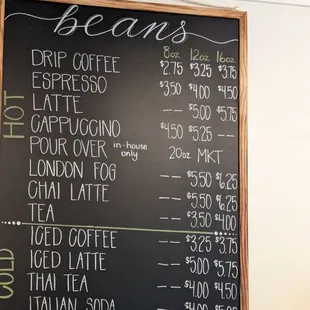 beans
8oz 12oz 16oz
DRIP COFFEE $2.75 $3.25 $3.75
ESPRESSO $3.50 $4.00 $4.50
LATTE -- $5.00 $5.75
CAPPUCCINO $4.50 $5.25 --
POUR OVER in-house only 20oz MKT
LONDON FOG -- $5.50 $6.25
CHAI LATTE -- $5.50 $6.25
TEA -- $3.50 $4.00
ICED COFFEE -- $3.25 $3.75
ICED LATTE -- $5.00 $5.75
THAI TEA -- $4.00 $4.50
ITALIAN SODA -- $4.00
HOT
COLD